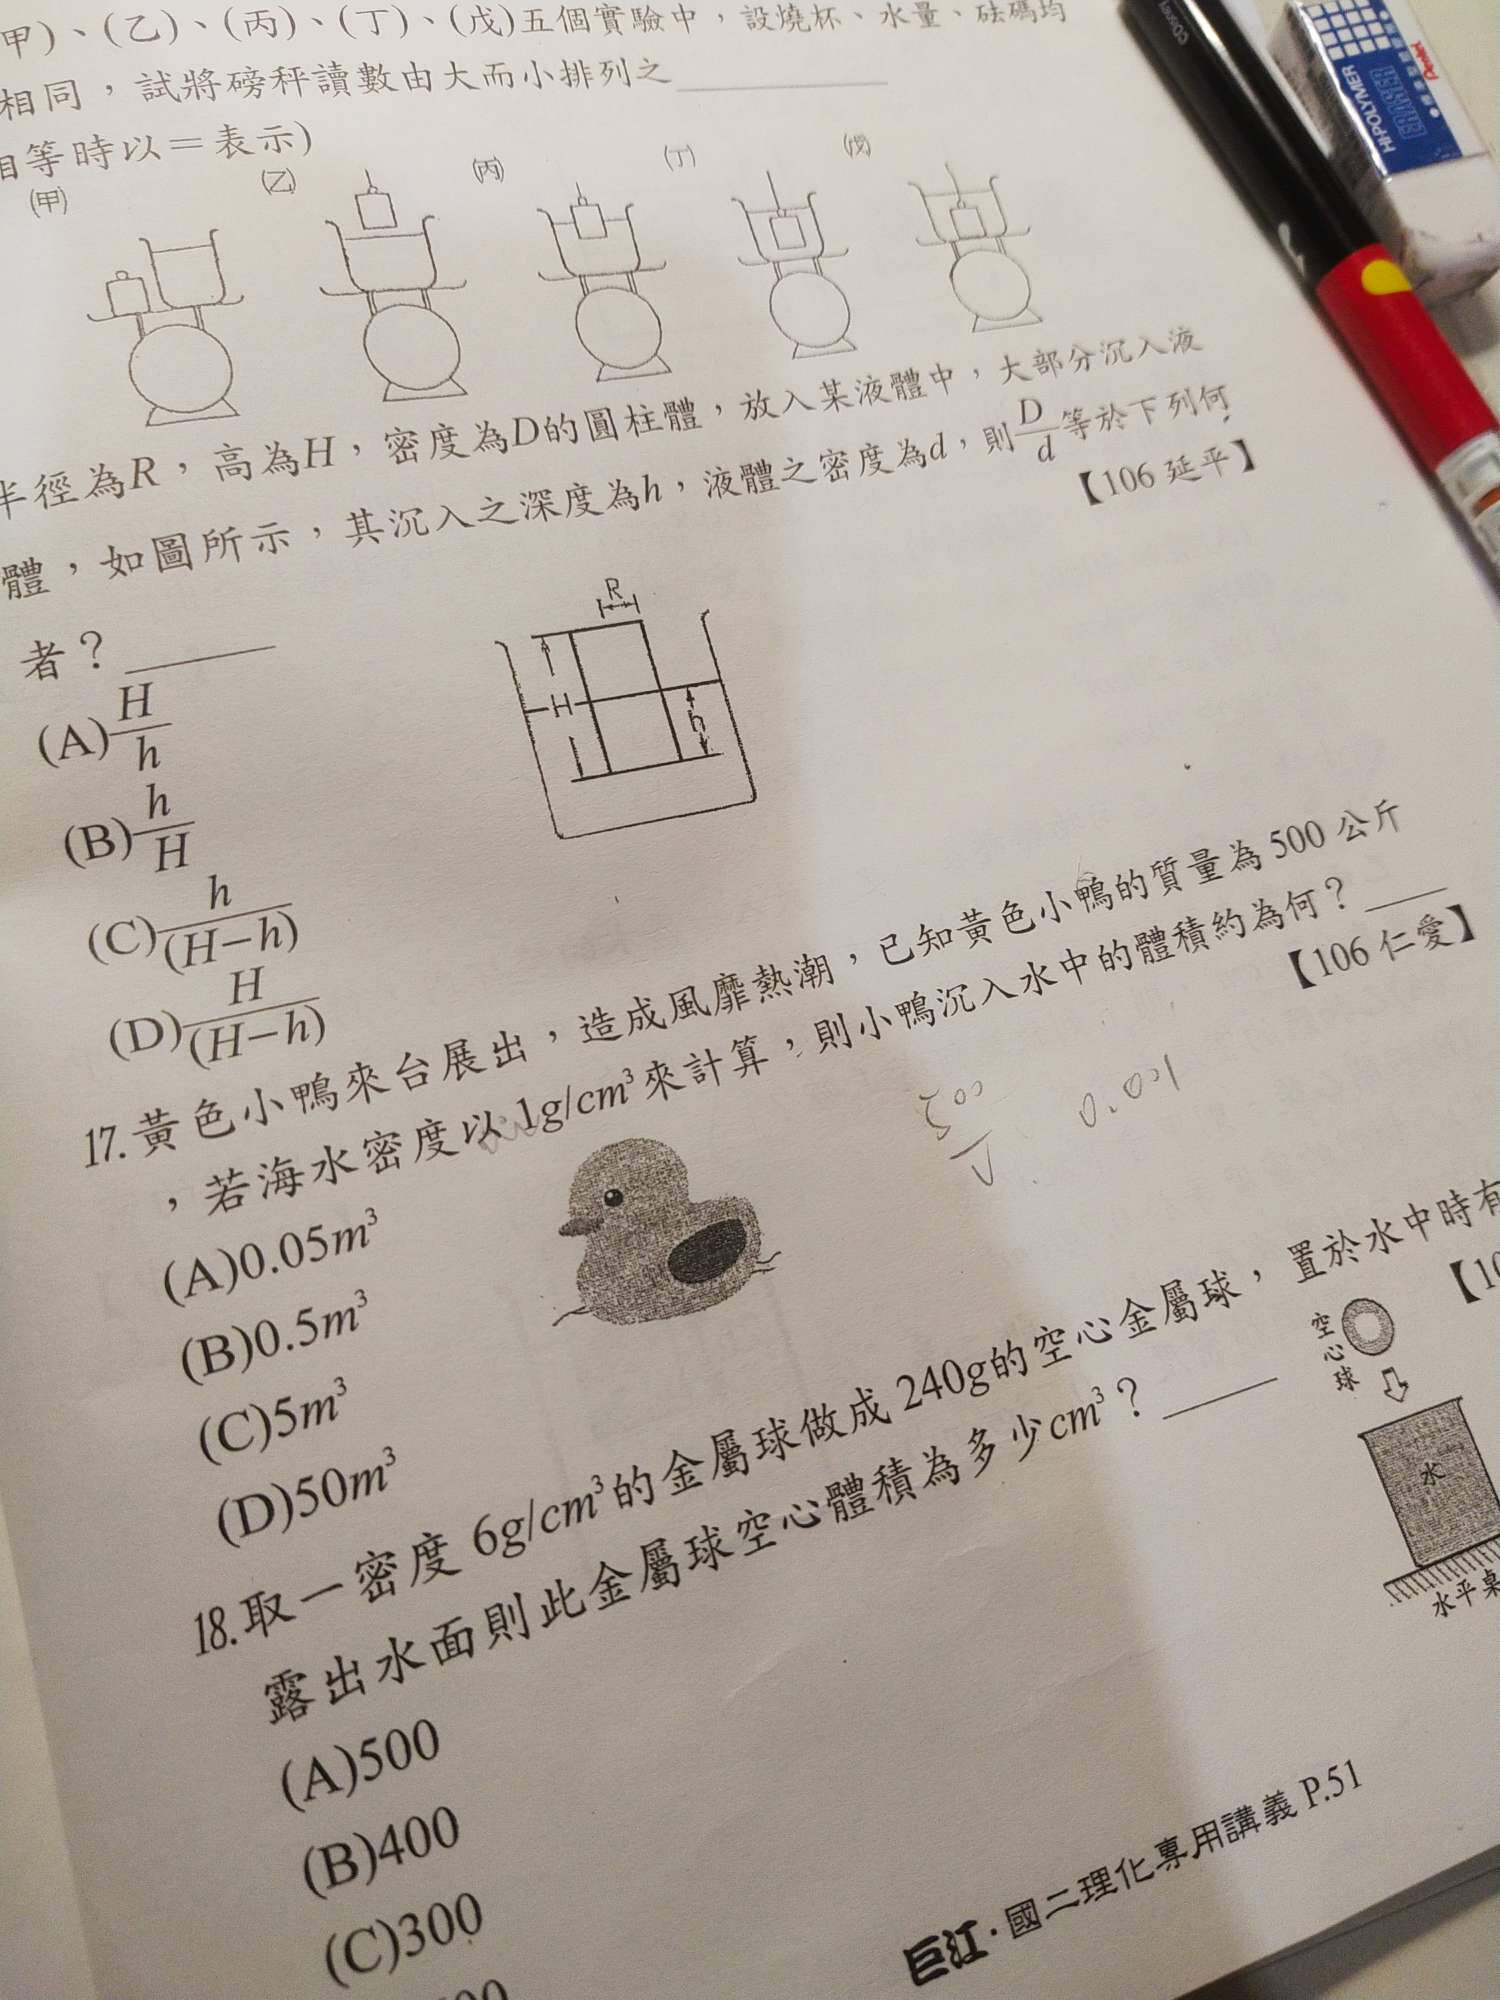 甲)、(乙)、(丙)、(丁)、(戊)五個實驗中，設燒杯、水量、砝碼均
相同，試將磅秤讀數由大而小排列之
相等時以＝表示)
(甲) (乙) (丙) (丁) (戊)
半徑為R，高為H，密度為D的圓柱體，放入某液體中，大部分沉入液
體，如圖所示，其沉入之深度為h，液體之密度為d，則D/d等於下列何
者？
【106 延平】
(A)H/h
(B)h/H
(C)h/(H−h)
(D)H/(H−h)
R
H
h
17.黃色小鴨來台展出，造成風靡熱潮，已知黃色小鴨的質量為 500 公斤
，若海水密度以 1g/cm³來計算，則小鴨沉入水中的體積約為何？
【106 仁愛】
(A)0.05m³
(B)0.5m³
(C)5m³
(D)50m³
500
0.001
18.取一密度 6g/cm³的金屬球做成 240g的空心金屬球，置於水中時有
露出水面則此金屬球空心體積為多少cm³？
【10
(A)500
(B)400
(C)300
空心球
水
水平桌
巨江·國二理化專用講義 P.51
HI-POLYMER
ERASER
Pentel